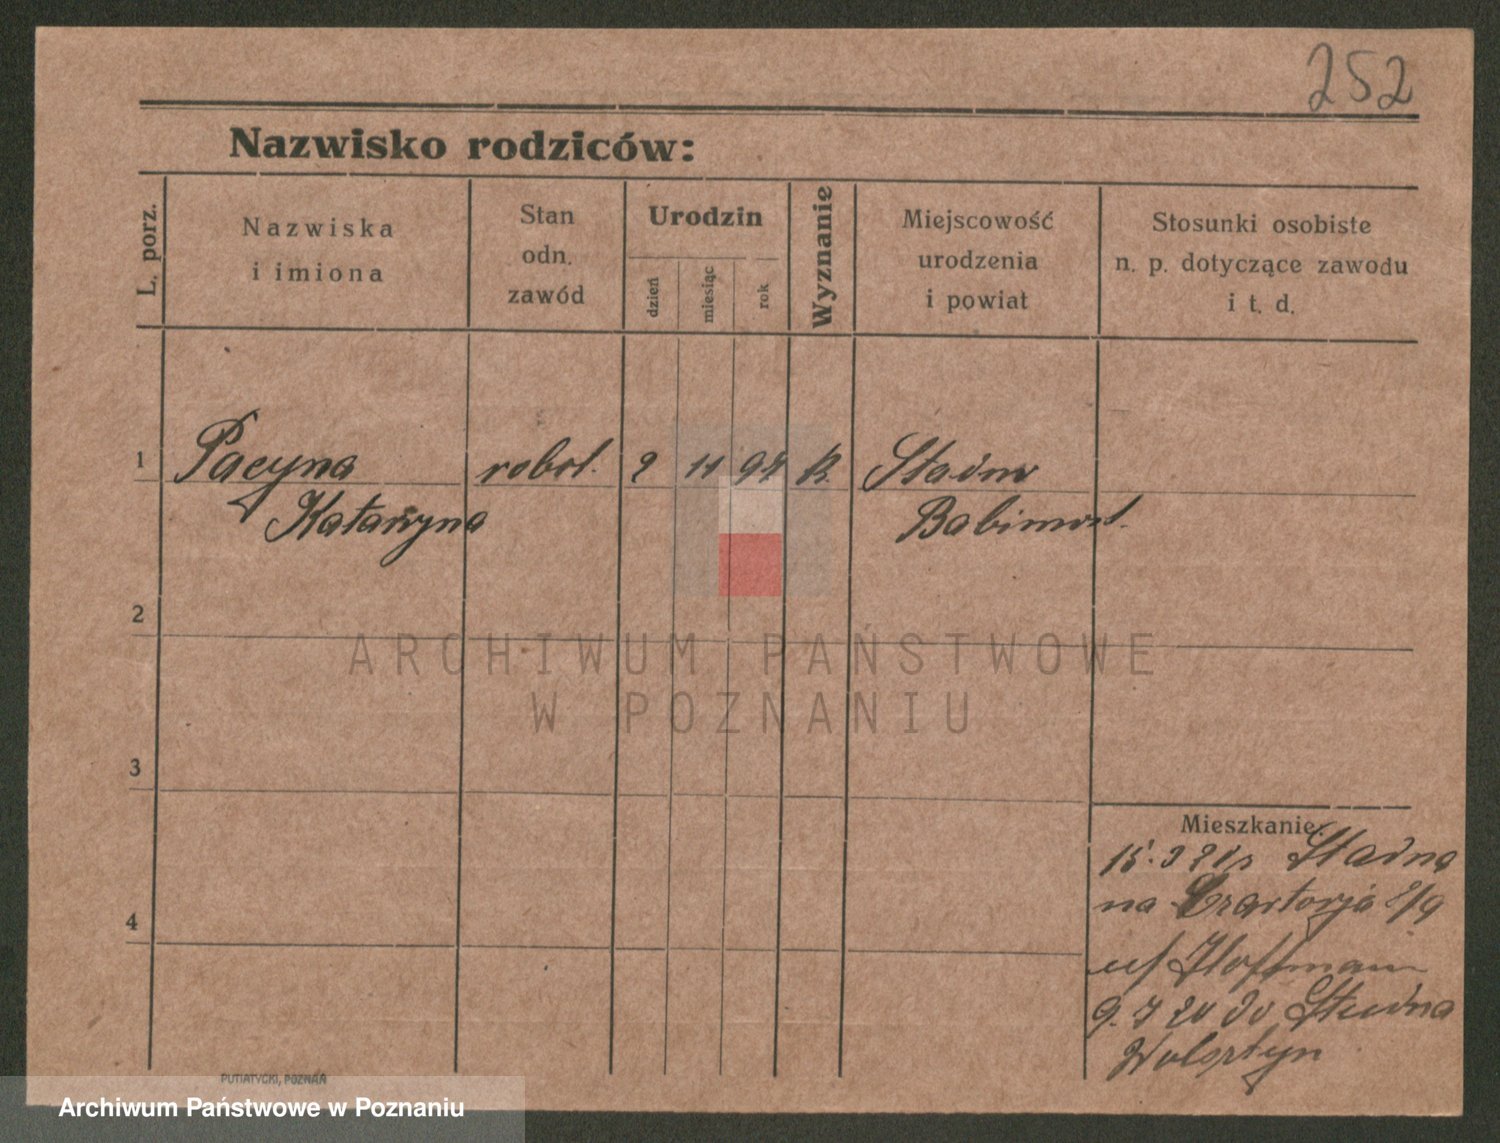 252
Nazwisko rodziców:
L. porz.
Nazwiska
i imiona
Stan
odn.
zawód
Urodzin
dzień
miesiąc
rok
Wyznanie
Miejscowość
urodzenia
i powiat
Stosunki osobiste
n. p. dotyczące zawodu
i t. d.
1 Pacyna robot. 2 11 94 k.
Katarzyna Babimost.
2
ARCHIWUM PAŃSTWOWE
W POZNANIU
3
Mieszkanie:
15. 3
4
na Czartorja 8/9
u/ Hoffmann
9. 7 20 do
Wolsztyn
PUTIATYCKI, POZNAŃ
Archiwum Państwowe w Poznaniu